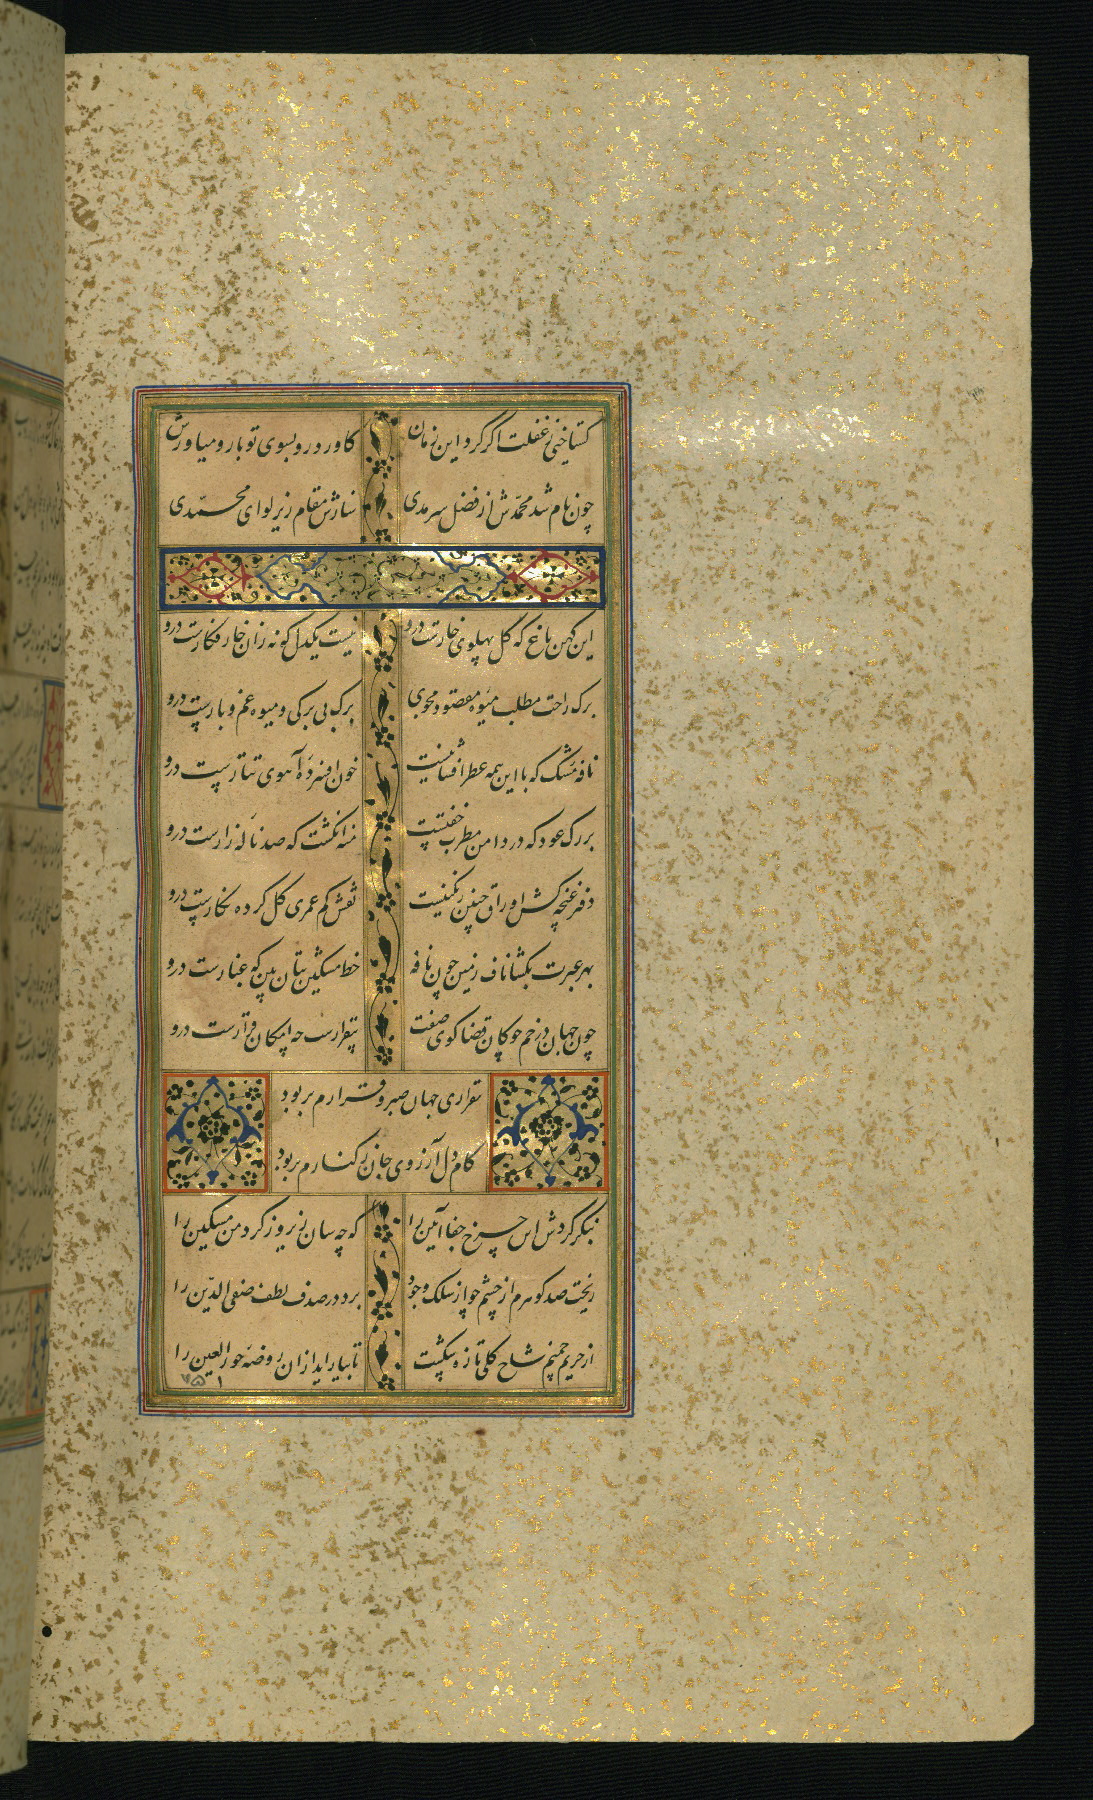 گستاخی و غفلت اگر کرد این زمان
کاورد رو بسوی تو باز و میاورش
چون نام شد محمدش از فضل سرمدی
سازش مقام زیر لوای محمدی
این کهن باغ که گل پهلوی خارست درو
نیست یکدل که نه زان خار فکارست درو
برک راحت مطلب میوه مقصود مجوی
برک بی برکی و میوه غم و بارست درو
نافه مشک که با این همه عطر افشانیست
خون افسرده آهوی تتارست درو
بر رک عود که در دامن مطرب خفتست
منه انکشت که صد ناله زارست درو
دفتر غنچه کش اوراق چنین رنکینیست
نقش کم عمری گل کرده نکارست درو
بهر عبرت بکشا ناف زمین چون نافه
خط مشکین بتان بین که غبارست درو
چون جهان در خم چوکان قضا کوی صفت
بیقرارست چه امکان قرارست درو
بیقراری جهان صبر و قرارم بربود
کام دل آرزوی جان ز کنارم بربود
بنکر کردش این چرخ جفا آیین را
که چه سان زیر و زبر کرد من مسکین را
ریخت صد کوهرم از چشم چو از سلک وجود
برد در صدف لطف صفی الدین را
از حریم چمنم شاخ گلی تازه شکست
تا بیاراید ازان روضه حور العین را